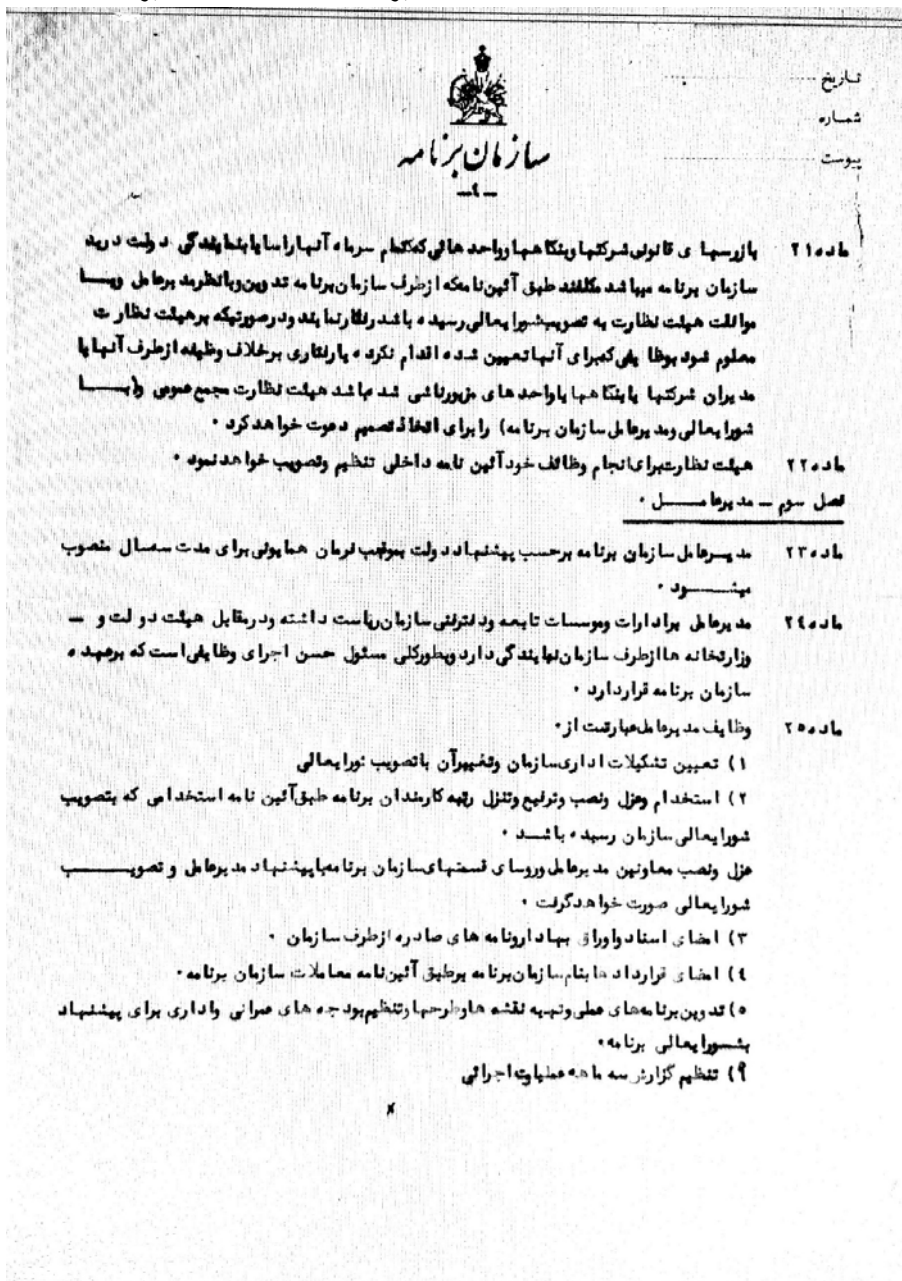 تاریخ
شماره
پیوست
سازمان برنامه
ـ ۹ ـ
ماده ۲۱ بازرسهای قانونی شرکتها وبنگاهها وواحد هائی که تمام سرمایه آنها راسا یا بنمایندگی دولت درید
سازمان برنامه میباشد مکلفند طبق آئین نامه که ازطرف سازمان برنامه تدوین وبانظر مدیرعامل ویا
موافقت هیئت نظارت به تصویب شورایعالی رسیده باشد رفتار نمایند ودرصورتیکه برهیئت نظارت
معلوم شود بوظایفی که برای آنها تعیین شده اقدام نکرده یا رفتاری برخلاف وظیفه ازطرف آنها یا
مدیران شرکتها یا بنگاهها یا واحد های مزبور ناشی شده باشد هیئت نظارت مجمع عمومی (یا
شورایعالی ومدیرعامل سازمان برنامه) را برای اتخاذ تصمیم دعوت خواهد کرد ۰
ماده ۲۲ هیئت نظارت برای انجام وظائف خود آئین نامه داخلی تنظیم وتصویب خواهد نمود ۰
فصل سوم ـ مدیرعامل ۰
ماده ۲۳ مدیرعامل سازمان برنامه برحسب پیشنهاد دولت بموجب فرمان همایونی برای مدت سه سال منصوب
میشود ۰
ماده ۲۴ مدیرعامل برادارات وموسسات تابعه ودفترفنی سازمان ریاست داشته ودرمقابل هیئت دولت و ـ
وزارتخانه ها ازطرف سازمان نمایندگی دارد وبطورکلی مسئول حسن اجرای وظایفی است که برعهده
سازمان برنامه قراردارد ۰
ماده ۲۵ وظایف مدیرعامل عبارتست از ۰
۱) تعیین تشکیلات اداری سازمان وتغییرآن باتصویب شورایعالی
۲) استخدام وعزل ونصب وترفیع وتنزل رتبه کارمندان برنامه طبق آئین نامه استخدامی که بتصویب
شورایعالی سازمان رسیده باشد ۰
عزل ونصب معاونین مدیرعامل وروسای قسمتهای سازمان برنامه باپیشنهاد مدیرعامل و تصویب
شورایعالی صورت خواهدگرفت ۰
۳) امضای اسناد واوراق بهادار ونامه های صادره ازطرف سازمان ۰
۴) امضای قرارداد ها بنام سازمان برنامه برطبق آئین نامه معاملات سازمان برنامه ۰
۵) تدوین برنامه های عملی وتهیه نقشه ها وطرحها وتنظیم بودجه های عمرانی واداری برای پیشنهاد
بشورایعالی برنامه ۰
۶) تنظیم گزارش سه ماهه عملیات اجرائی